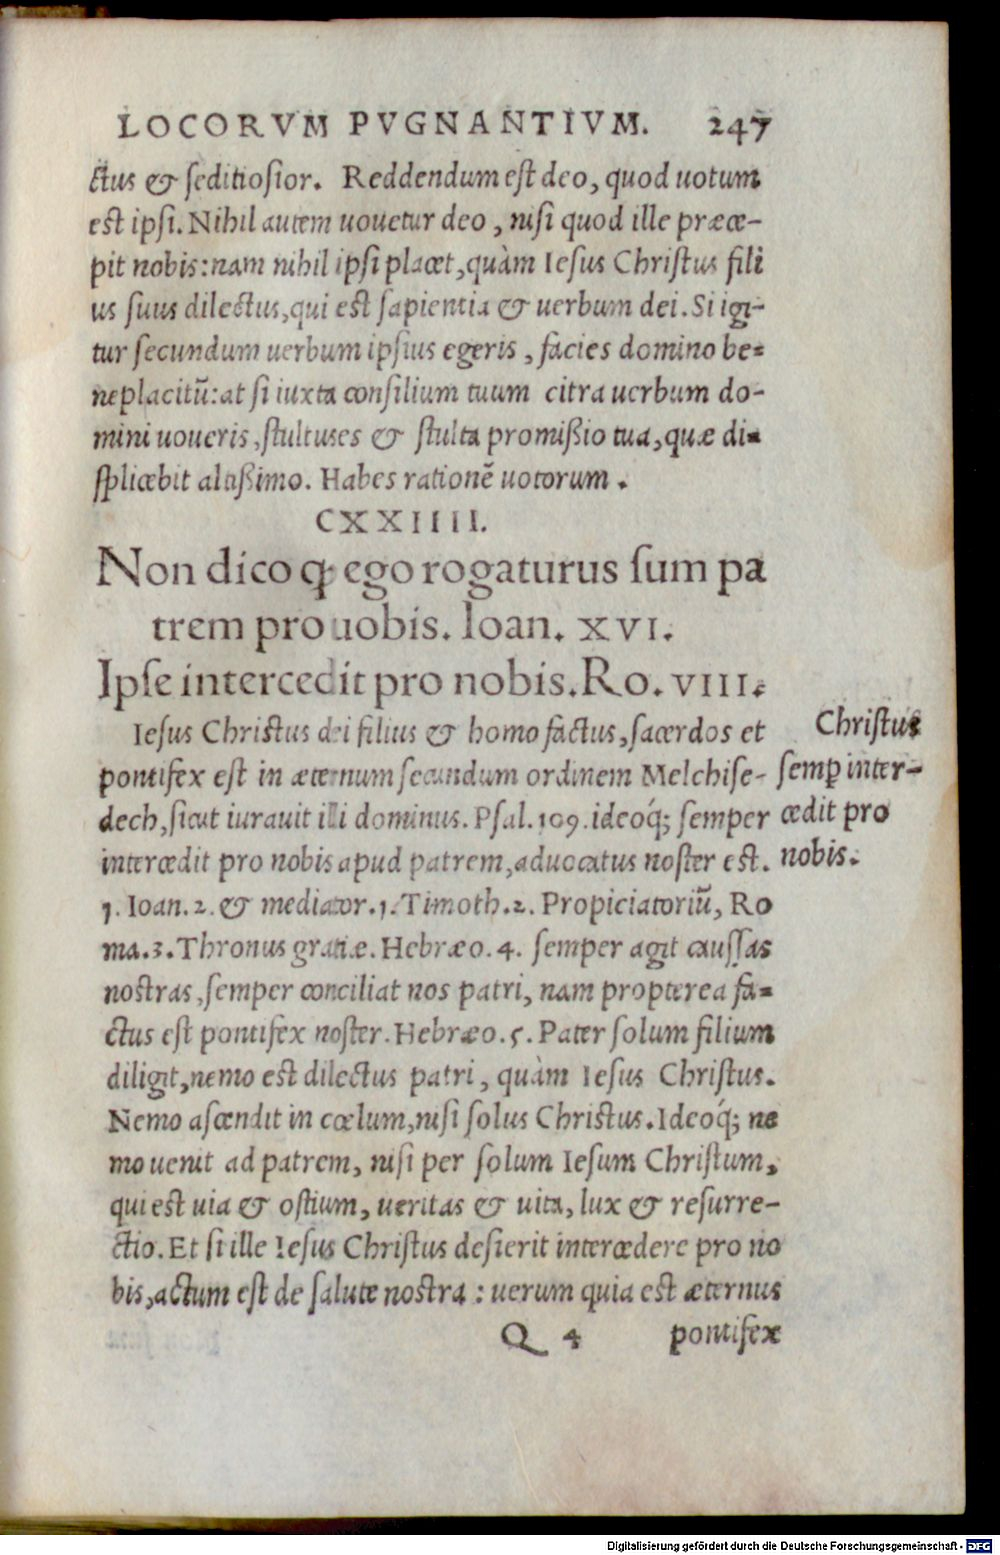 LOCORVM PVGNANTIVM. 247
ctus & seditiosior. Reddendum est deo, quod uotum
est ipsi. Nihil autem uouetur deo, nisi quod ille præce-
pit nobis: nam nihil ipsi placet, quàm Iesus Christus fili
us suus dilectus, qui est sapientia & uerbum dei. Si igi-
tur secundum uerbum ipsius egeris, facies domino be-
neplacitũ: at si iuxta consilium tuum citra uerbum do-
mini uoueris, stultus es & stulta promißio tua, quæ di-
splicebit altißimo. Habes rationẽ uotorum.
CXXIIII.
Non dico ꝙ ego rogaturus sum pa
trem pro uobis. Ioan. XVI.
Ipse intercedit pro nobis. Ro. VIII.
Iesus Christus dei filius & homo factus, sacerdos et
pontifex est in æternum secundum ordinem Melchise-
dech, sicut iurauit illi dominus. Psal. 109. ideoq́; semper
intercedit pro nobis apud patrem, aduocatus noster est.
1. Ioan. 2. & mediator. 1. Timoth. 2. Propiciatoriũ, Ro
ma. 3. Thronus gratiæ. Hebræo. 4. semper agit caussas
nostras, semper conciliat nos patri, nam propterea fa-
ctus est pontifex noster. Hebræo. 5. Pater solum filium
diligit, nemo est dilectus patri, quàm Iesus Christus.
Nemo ascendit in cœlum, nisi solus Christus. Ideoq́; ne
mo uenit ad patrem, nisi per solum Iesum Christum,
qui est uia & ostium, ueritas & uita, lux & resurre-
ctio. Et si ille Iesus Christus desierit intercedere pro no
bis, actum est de salute nostra: uerum quia est æternus
Q 4 pontifex
Christus
semꝑ inter-
cedit pro
nobis.
Digitalisierung gefördert durch die Deutsche Forschungsgemeinschaft - DFG